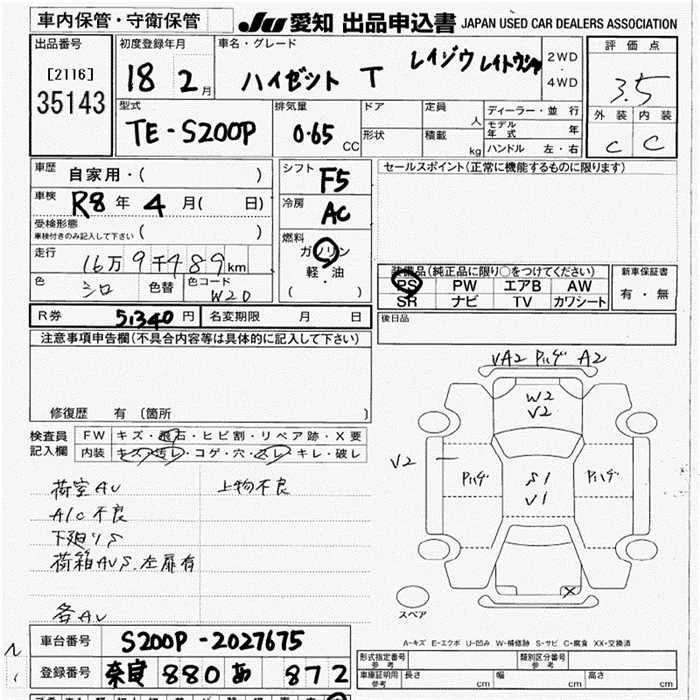 車内保管・守衛保管
JU 愛知 出品申込書 JAPAN USED CAR DEALERS ASSOCIATION
出品番号 初度登録年月 車名・グレード 評価点
[2116]
35143
18 2月 ハイゼット T レイゾウ レイトウシャ 2WD・4WD 3.5
型式 排気量 ドア 定員 人 ディーラー・並行 外装 内装
TE-S200P 0.65 CC 形状 積載 kg モデル年式 年 C C
ハンドル 左・右
車歴 自家用・( )
シフト F5
セールスポイント(正常に機能するものに限ります)
車検 R8年 4月( 日)
冷房 AC
受検形態
車検付きのみ記入して下さい ( )
燃料 ガソリン
軽・油
( )
走行 16万9千489km
色 シロ 色替 色コード W20
装備品(純正品に限り○をつけてください) 新車保証書
PS PW エアB AW 有・無
SR ナビ TV カワシート
R券 51340円 名変期限 月 日
後日品
注意事項申告欄(不具合内容等は具体的に記入して下さい)
修復歴 有 (箇所 )
検査員記入欄 FW キズ・飛石・ヒビ割・リペア跡・X要
内装 キズ・汚レ・コゲ・穴・スレ・キレ・破レ
荷室AU 上物不良
A/C不良
下廻りS
荷箱AUS.左扉有
各AU
VA2 ハ゜ハケ゛ A2
W2
V2
V2
ハ゜ハケ゛ S1 ハ゜ハケ゛
V1
X
スペア
A-キズ E-エクボ U-凹み W-補修跡 S-サビ C-腐食 XX-交換済
車台番号 S200P-2027675
登録番号 奈良 880 あ 872
形式指定番号 参考 類別区分番号 参考
車庫証明用 参考 長さ cm 幅 cm 高さ cm